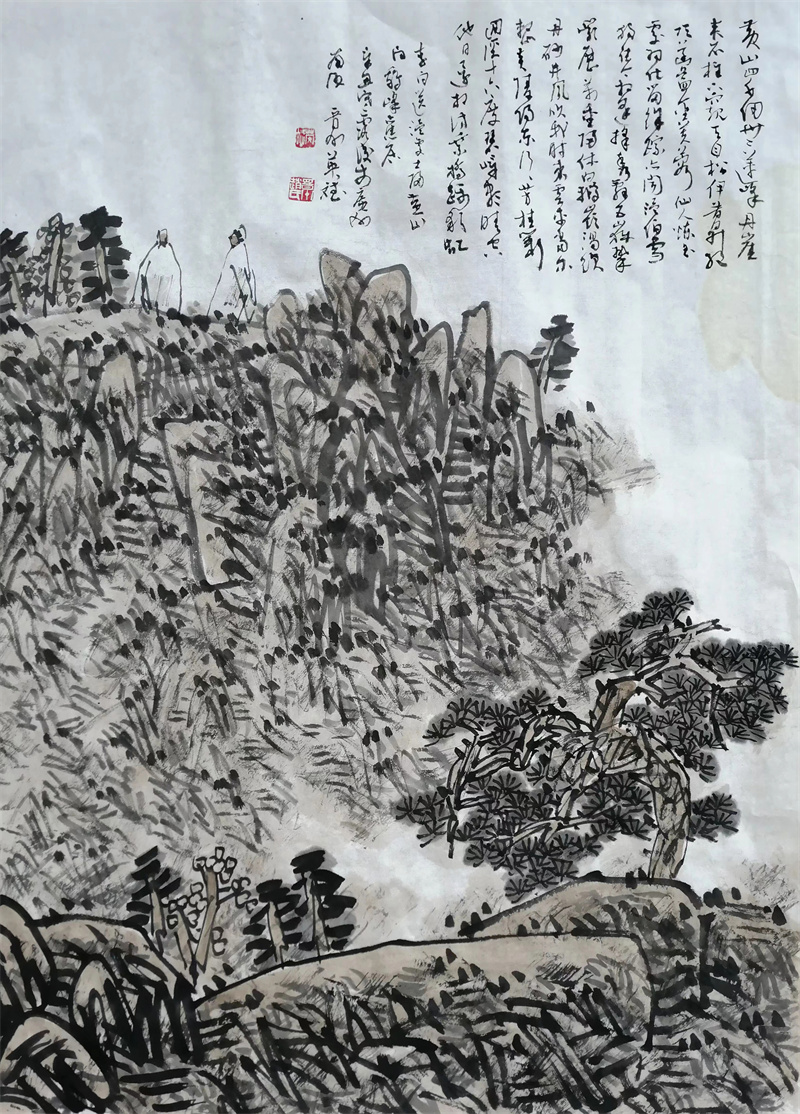 黄山四千仞卅二莲峰丹崖
夹石柱下窥天目松伊昔升絶
顶菡萏金芙蓉仙人炼玉
處羽化留馀踪亦闻温伯雪
独往今相逢採秀辞五嶽攀
巖歷萬重归休白鹅嶺渴饮
丹砂井凤吹我时来雲车当尔
整去陵阳东行〻芳桂丛
回溪十六度碧嶂尽晴空
他日还相访乘橋蹑彩虹
李白送温处士归黄山
白鹅峰舊居
辛丑寒露後